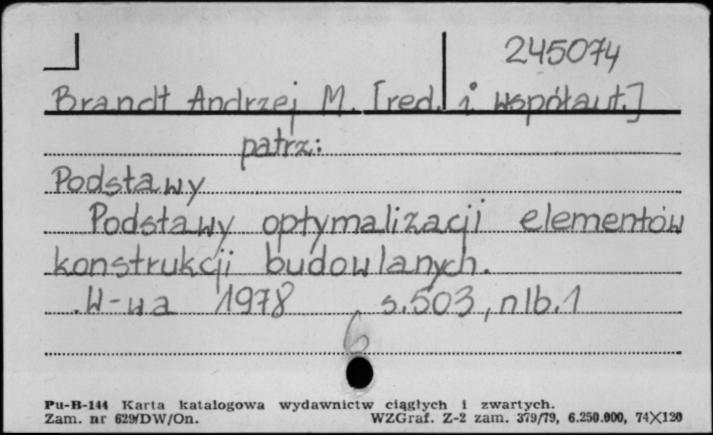 245074
Brandt Andrzej M. [red. i współaut.]
patrz:
Podstawy
Podstawy optymalizacji elementów
konstrukcji budowlanych.
W-wa 1978 s.503, nlb.1
6
Pu-B-144 Karta katalogowa wydawnictw ciągłych i zwartych.
Zam. nr 629/DW/On. WZGraf. Z-2 zam. 379/79, 6.250.000, 74X120